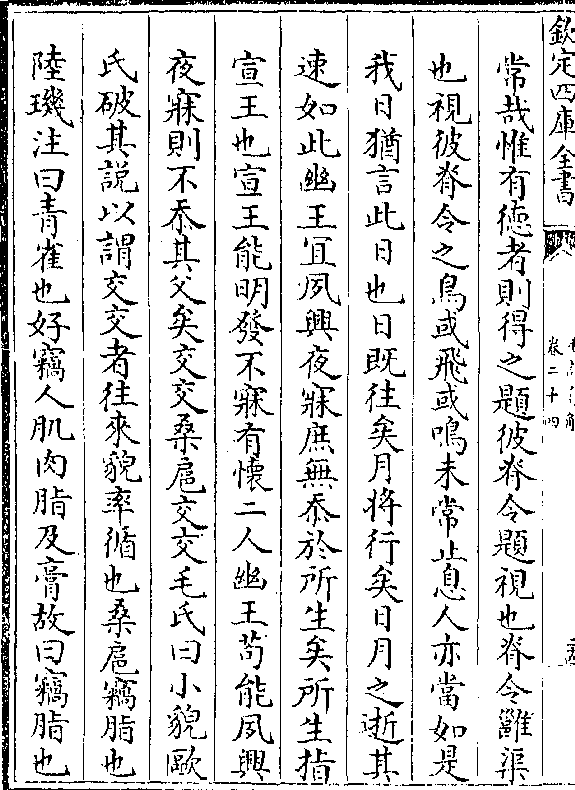 欽定四庫全書
卷二十四
常哉惟有德者則得之題彼脊令題視也脊令雝渠
也視彼脊令之鳥或飛或鳴未常止息人亦當如是
我日猶言此日也日既往矣月将行矣日月之逝其
速如此幽王冝夙興夜寐庶無忝於所生矣所生指
宣王也宣王能明發不寐有懷二人幽王苟能夙興
夜寐則不忝其父矣交交桑扈交交毛氏曰小貌歐
氏破其説以謂交交者往來貌率循也桑扈竊脂也
陸璣注曰青雀也好竊人肌肉脂及膏故曰竊脂也